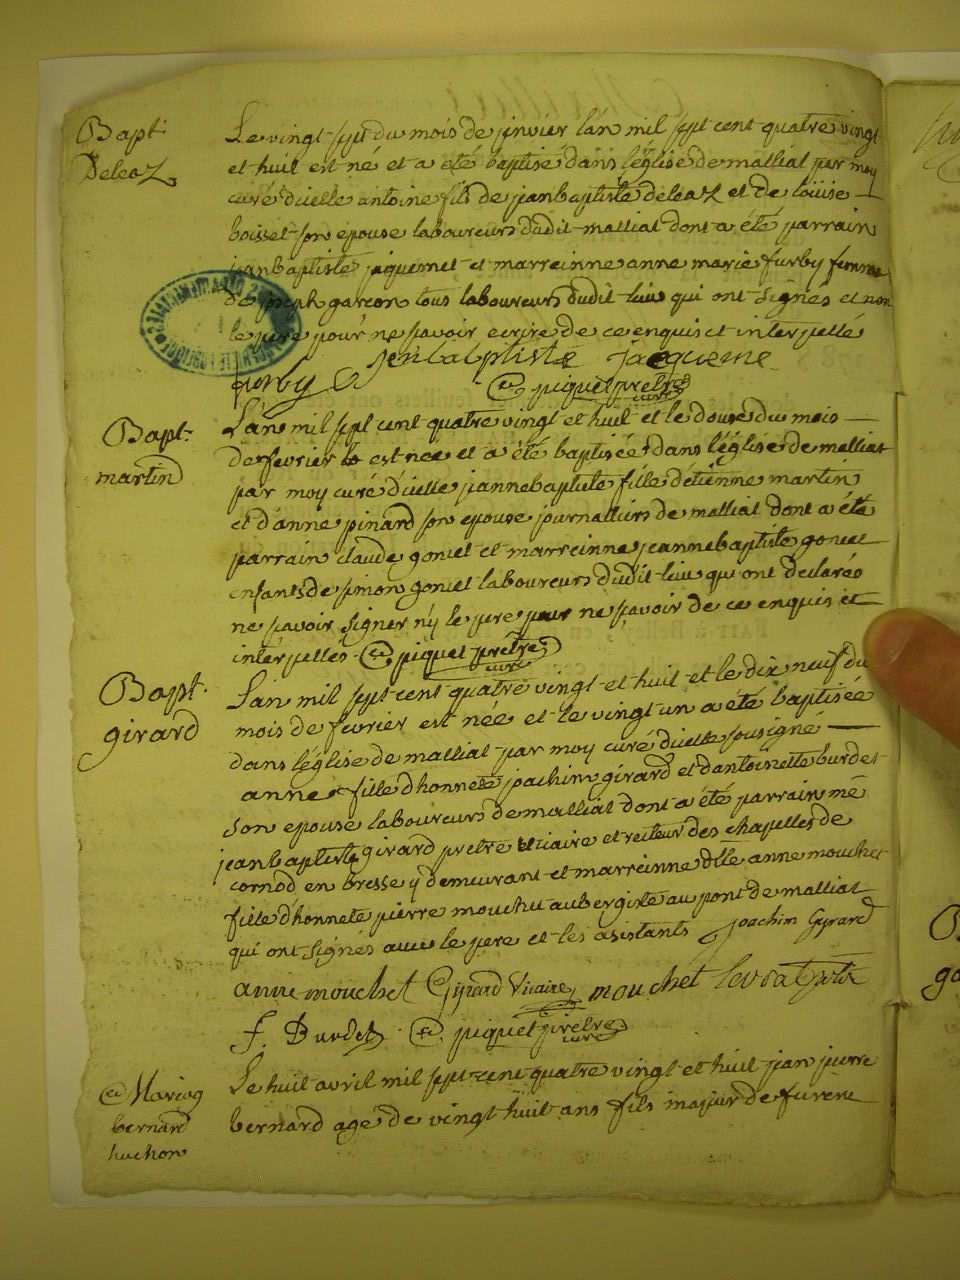 Bapt.
Deleaz
Le vingt sept du mois de janvier l'an mil sept cent quatre vingt
et huit est né et a été baptisé dans l'église de malliat par moy
curé d'icelle antoine fils de jean baptiste deleaz et de loüise
boisset son epouse laboureurs dudit malliat dont a été parrain
jean baptiste jaquemet et marreinne anne marie furby femme
de joseph garçon tous laboureurs dudit lieu qui ont signés et non
le pere pour ne savoir ecrire de ce enquis et interpellé
jenbaptiste jacqueme
furby
piquet prêtre
curé
Bapt.
martin
L'an mil sept cent quatre vingt et huit et le douse du mois
de fevrier est née et a été baptisée dans l'église de malliat
par moy curé d'icelle jeanne baptiste fille d'étienne martin
et d'anne pinard son epouse journalliers de malliat dont a été
parrain claude goniet et marreinne jeanne baptiste goniet
enfants de simon goniet laboureurs dudit lieu qui ont declarés
ne savoir signer n'y le pere pour ne savoir de ce enquis et
interpellés. piquet prêtre
curé
Bapt.
girard
L'an mil sept cent quatre vingt et huit et le dix neuf du
mois de fevrier est née et le vingt un a été baptisée
dans l'église de malliat par moy curé d'icelle sousigné
anne fille d'honnete joachim girard et d'antoinette burdet
son epouse laboureurs de malliat dont a été parrain me
jean baptiste girard prêtre vicaire et recteur des chapelles de
cornod en bresse y demeurant et marreinne dlle anne mouchet
fille d'honnete pierre mouchet aubergiste au pont de malliat
qui ont signés avec le pere et les asistants joachim Gyrard
anne mouchet Girard vicaire mouchet
f. Burdet piquet prêtre
curé
Mariag
bernard
huchon
Le huit avril mil sept cent quatre vingt et huit jean pierre
bernard age de vingt huit ans fils majeur de